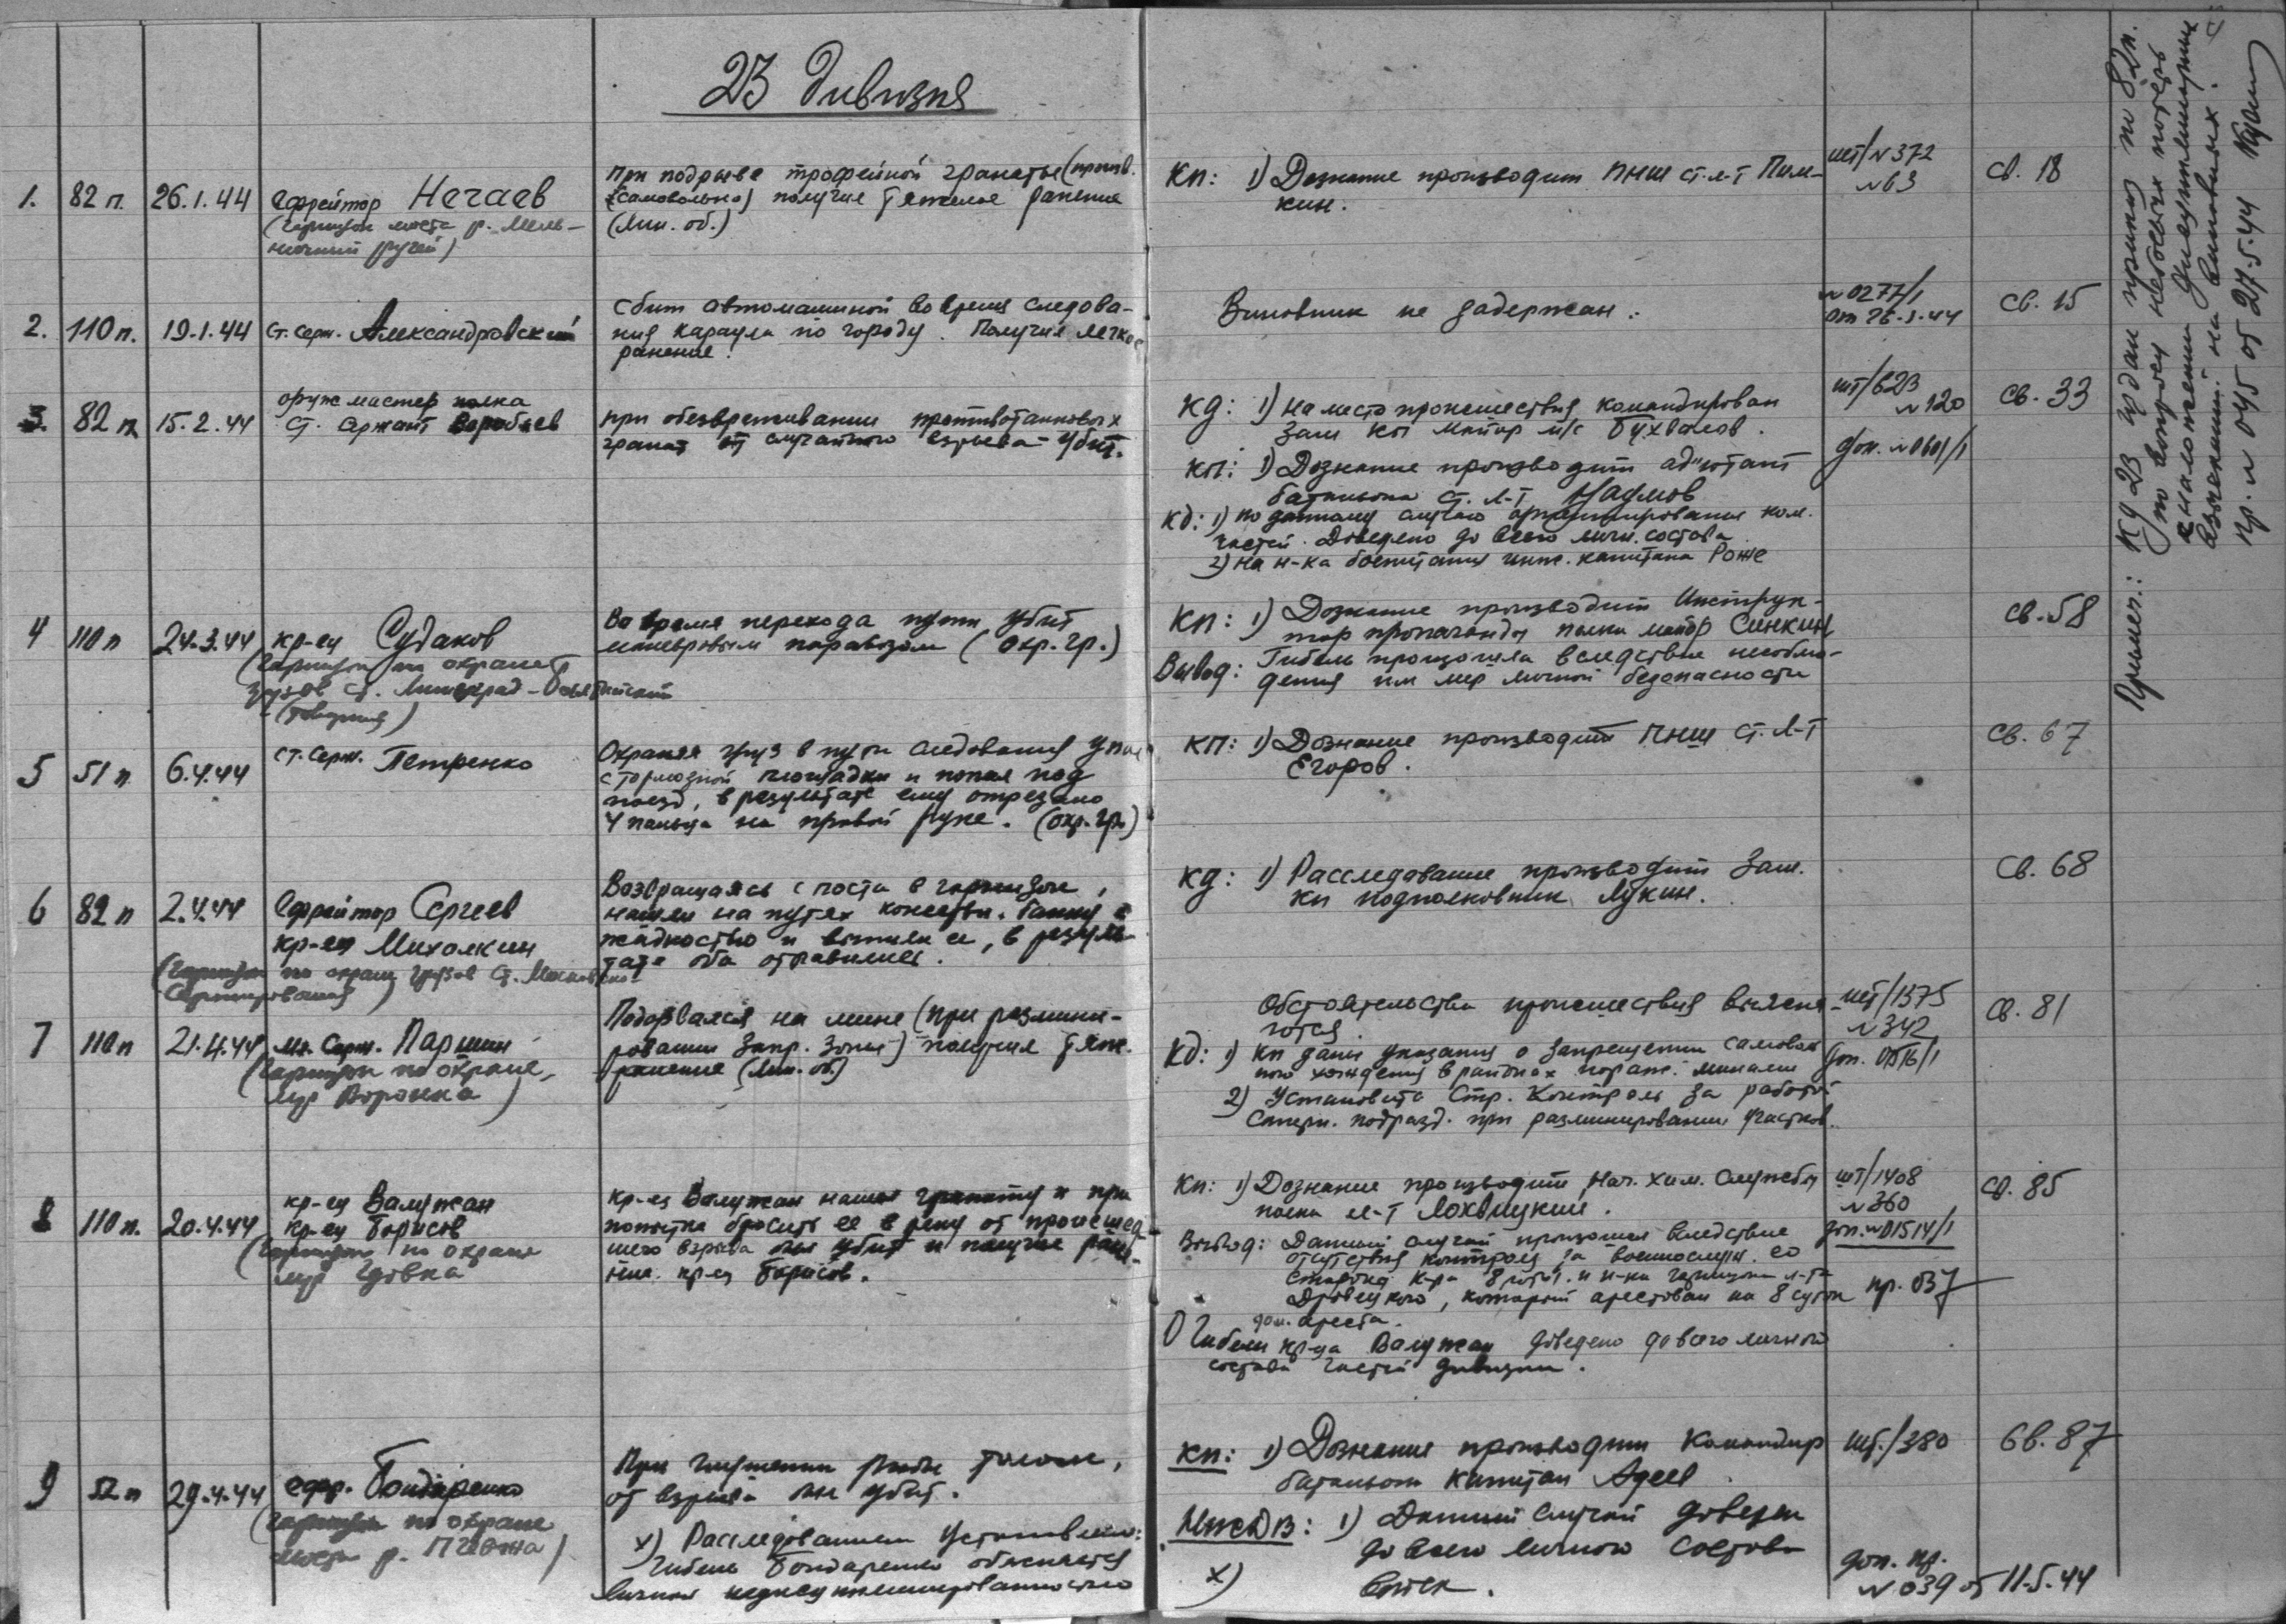 23 дивизия
1. 82 п. 26.1.44 Ефрейтор Нечаев
(гарнизон моста р. Мель-
ничный ручей)
При подрыве трофейной гранаты (произв.
самовольно) получил тяжелое ранение
(Лин. об.)
КП: 1) Дознание производит ПНШ ст. л-т Пим-
кин.
шт/№372
№63
св. 18
2. 110 п. 19.1.44 Ст. Серж. Александровский
Сбит автомашиной во время следова-
ния караула по городу. Получил легкое
ранение.
Виновник не задержан.
№0277/1
от 26.1.44
св. 15
3. 82 п. 15.2.44 оруж мастер полка
ст. сержант Воробьев
при обезвреживании противотанковых
гранат от случайного взрыва - убит.
КД: 1) На место происшествия командирован
зам КП майор и/с Бухвалов.
КП: 1) Дознание производит ад"ютант
батальона ст. л-т
КД: 1) по данному случаю ком.
частей. Доведено до всего личн. состава
2) На н-ка боепитания инж. капитана Роже
шт/623
№120
доп. №0601/1
св. 33
4 110 п 24.3.44 кр-ец Судаков
(гарнизон по охране
грузов ст. Ленинград-Балтийский
(товарная)
Во время перехода пути убит
маневровым паровозом (охр. гр.)
КП: 1) Дознание производит Инструк-
тор пропаганды полка майор Синкин
Вывод: Гибель произошла вследствие несоблю-
дения им мер личной безопасности
св. 58
5 51 п. 6.4.44 ст. серж. Петренко
Охраняя груз в пути следования упал
с тормозной площадки и попал под
поезд, в результате ему отрезано
4 пальца на правой руке. (охр. гр.)
КП: 1) Дознание производит ПНШ ст. л-т
Егоров.
св. 67
6 82 п 2.4.44 Ефрейтор Сергеев
кр-ец Михалкин
(гарнизон по охране грузов ст. Московско-
Сортировочная)
Возвращаясь с поста в гарнизон,
нашли на путях консервн. банку с
жидкостью и выпили ее, в резуль-
тате оба отравились.
КД: 1) Расследование производит Зам.
КП подполковник Лукин.
св. 68
7 110 п 21.4.44 мл. Серж. Паршин
(гарнизон по охране,
м/р Воронка)
Подорвался на мине (при размини-
ровании запр. зоны) получил тяж.
ранение (Лин. об.)
Обстоятельства происшествия выясня-
ются.
КД: 1) КП даны указания о запрещении самоволь
ного хождения в районах пораж. минами
2) Установить Стр. Контроль за работой
Саперн. подразд. при разминировании участков.
шт/1375
№342
доп.
св. 81
8 110 п. 20.4.44 кр-ец Валужан
кр-ец Борисов
(гарнизон по охране
м/р Удовка
кр-ец Валужан нашел гранату и при
попытке бросить ее в реку от происшед-
шего взрыва был убит и получил ране-
ние кр-ец Борисов.
КП: 1) Дознание производит Нач. хим. службы
полка л-т Лохвицкий.
Вывод: Данный случай произошел вследствие
отсутствия контроля за военнослуж. со
стороны к-ра 8 роты и н-ка гарнизона л-та
который арестован на 8 суток
дом. ареста.
О гибели кр-ца Валужан доведено до всего личного
состава частей дивизии.
шт/1408
№360
доп. №01514/1
пр. 037
св. 85
9 52 п 29.4.44 ефр. Бондаренко
(гарнизон по охране
моста р.
При глушении рыбы толом,
от взрыва был убит.
х) Расследованием установлено:
Гибель Бондаренко объясняется
личной недисциплинированностью
КП: 1) Дознание производит командир
батальона капитан Адеев
1) Данный случай доведен
до всего личного состава
х)
шт./380
св. 87
доп. пр.
№039 от 11.5.44
Примеч.: КД 23 издан приказ по
по вопросу небоевых потерь
с наложением дисциплинарных
взысканий на виновных.
Пр. №045 от 27.5.44